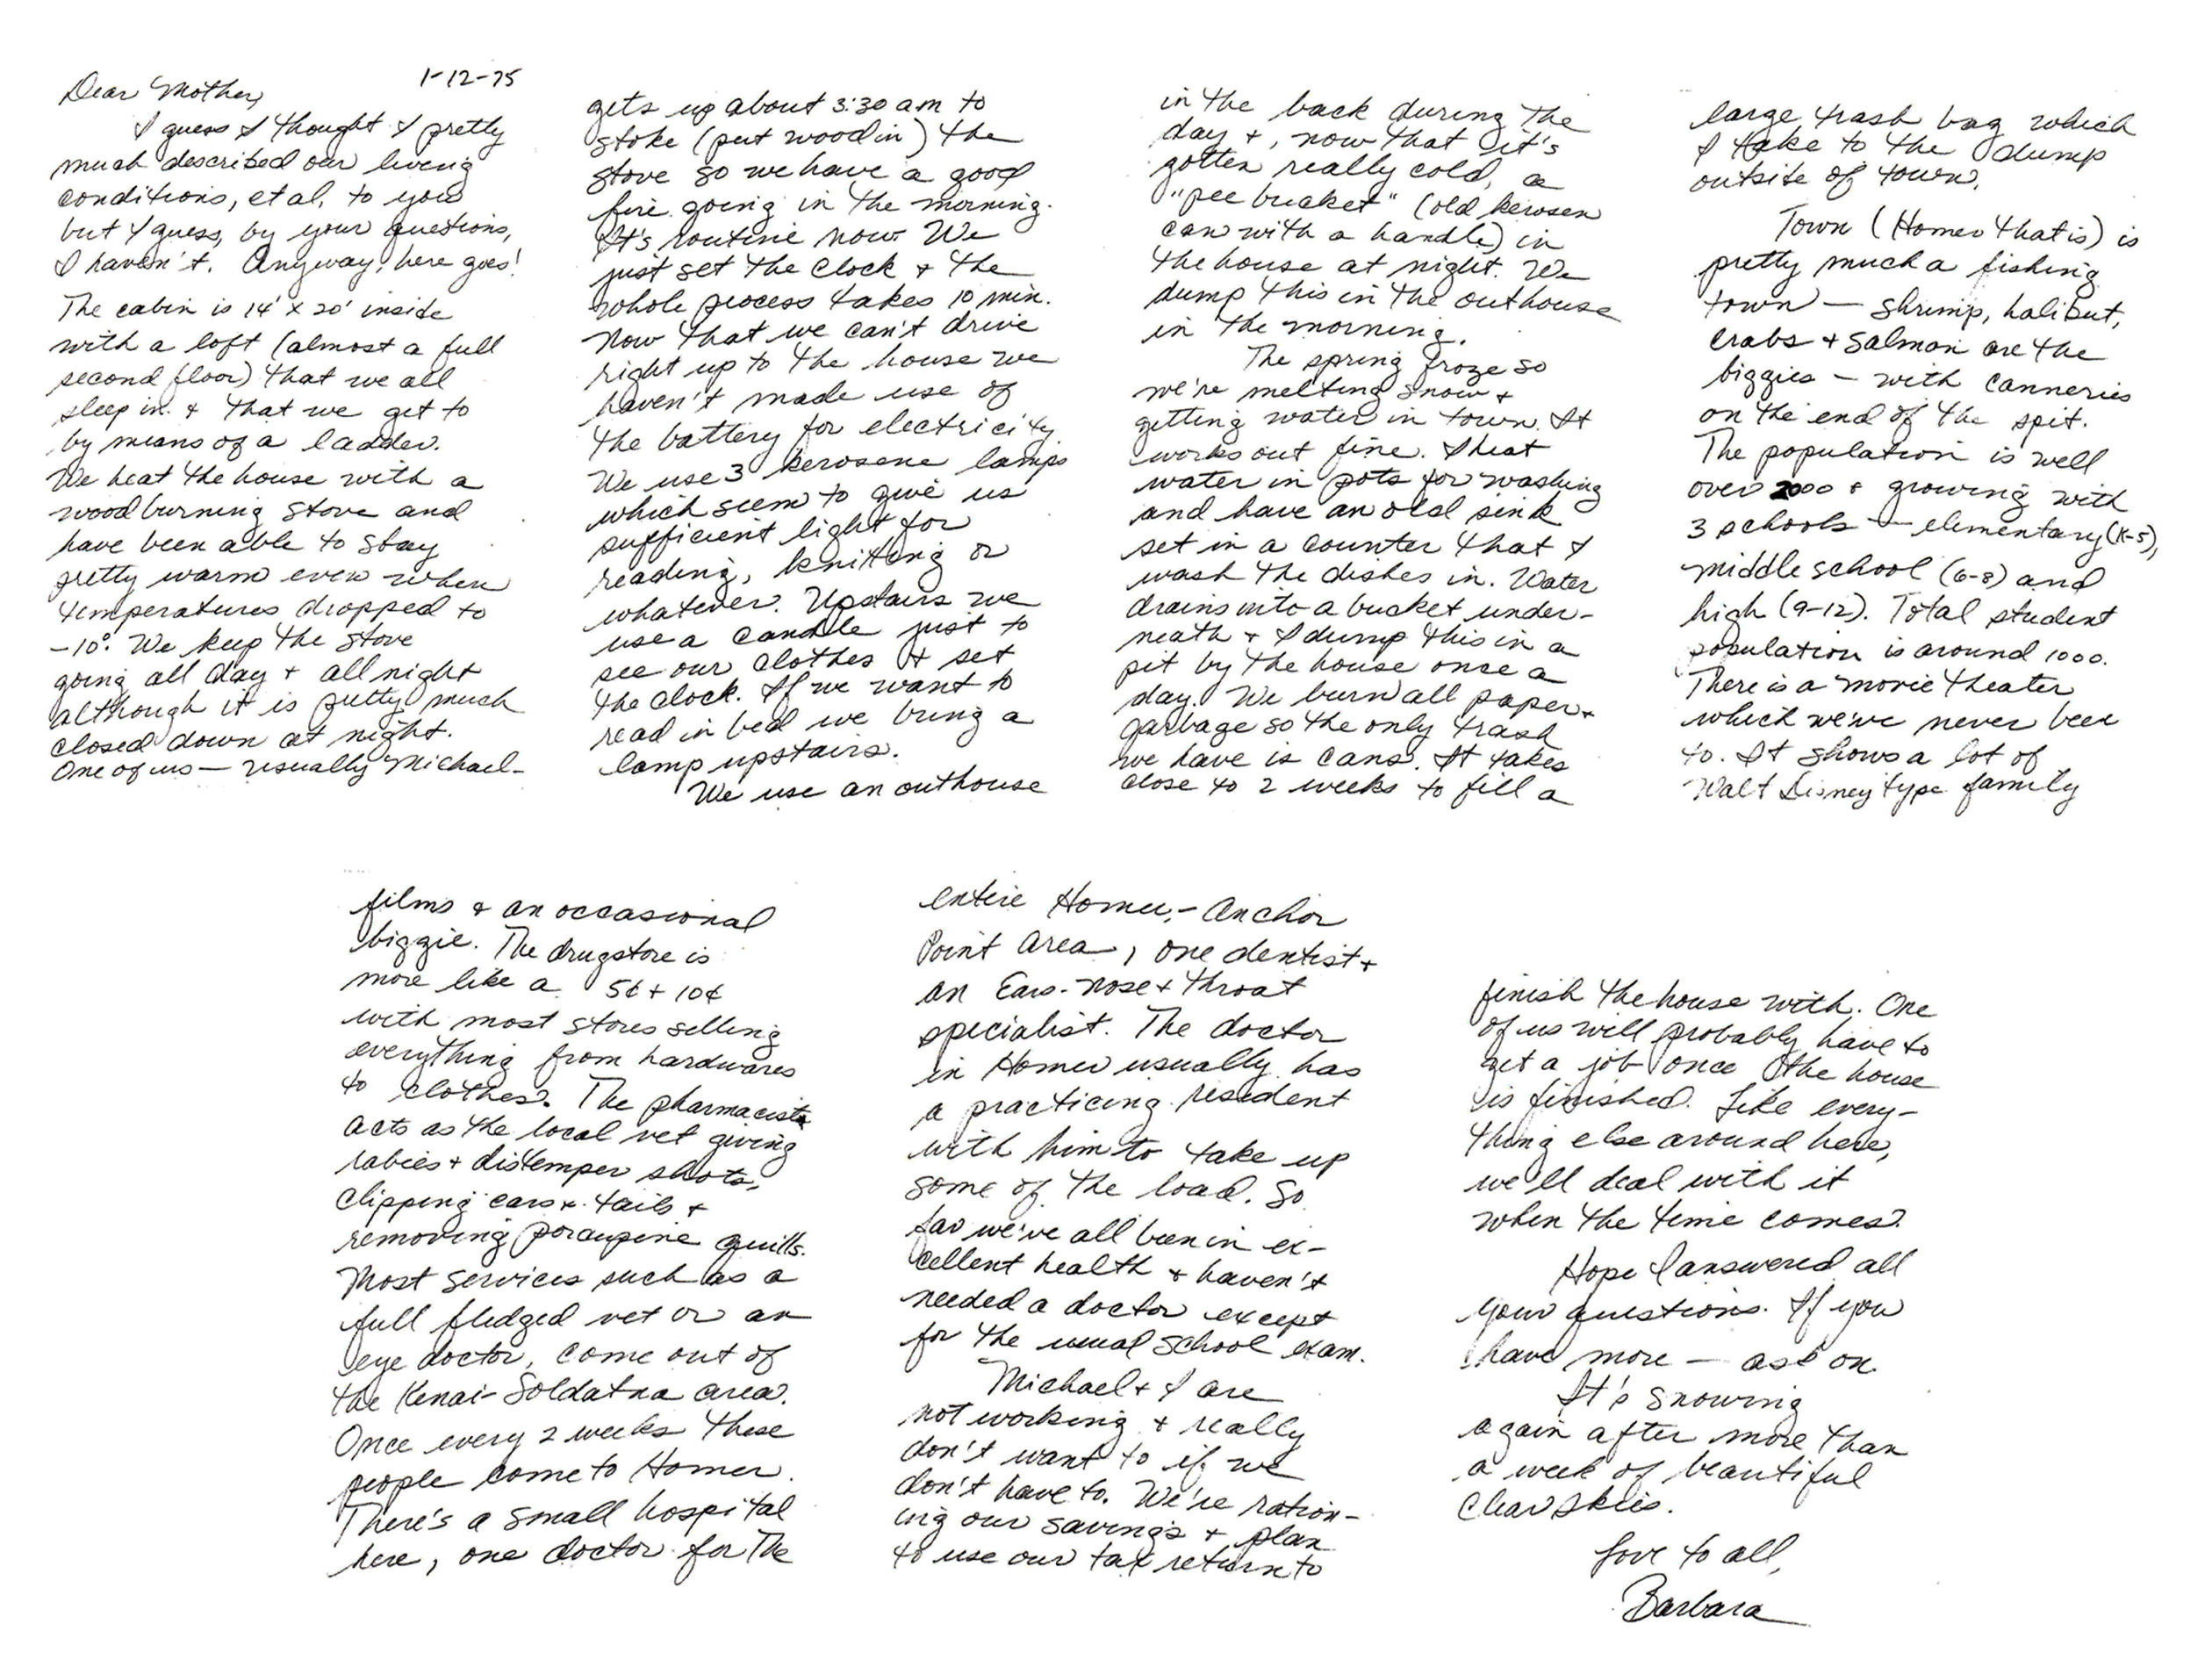 1-12-75
Dear Mother,
I guess I thought I pretty
much described our living
conditions, et al, to you
but I guess, by your questions,
I haven't. Anyway, here goes!
The cabin is 14' x 20' inside
with a loft (almost a full
second floor) that we all
sleep in & that we get to
by means of a ladder.
We heat the house with a
wood burning stove and
have been able to stay
pretty warm even when
temperatures dropped to
-10°. We keep the stove
going all day + all night
although it is pretty much
closed down at night.
One of us — usually Michael -
gets up about 3:30 am to
stoke (put wood in) the
stove so we have a good
fire going in the morning.
It's routine now. We
just set the clock + the
whole process takes 10 min.
Now that we can't drive
right up to the house we
haven't made use of
the battery for electricity.
We use 3 kerosene lamps
which seem to give us
sufficient light for
reading, knitting or
whatever. Upstairs we
use a candle just to
see our clothes & set
the clock. If we want to
read in bed we bring a
lamp upstairs.
We use an outhouse
in the back during the
day +, now that it's
gotten really cold, a
"pee bucket" (old kerosen
can with a handle) in
the house at night. We
dump this in the outhouse
in the morning.
The spring froze so
we're melting snow +
getting water in town. It
works out fine. I heat
water in pots for washing
and have an old sink
set in a counter that I
wash the dishes in. Water
drains into a bucket under-
neath + I dump this in a
pit by the house once a
day. We burn all paper +
garbage so the only trash
we have is cans. It takes
close to 2 weeks to fill a
large trash bag which
I take to the dump
outsite of town.
Town (Homer that is) is
pretty much a fishing
town — shrimp, halibut,
crabs + salmon are the
biggies — with canneries
on the end of the spit.
The population is well
over 2000 & growing with
3 schools — elementary (K-5),
middle school (6-8) and
high (9-12). Total student
population is around 1000.
There is a movie theater
which we've never been
to. It shows a lot of
Walt Disney type family
films & an occasional
biggie. The drugstore is
more like a 5¢ + 10¢
with most stores selling
everything from hardwares
to clothes. The pharmacist
acts as the local vet giving
rabies + distemper shots,
clipping ears + tails +
removing porcupine quills.
Most services such as a
full fledged vet or an
eye doctor, come out of
the Kenai-Soldatna area.
Once every 2 weeks these
people come to Homer.
There's a small hospital
here, one doctor for the
entire Homer - Anchor
Point Area, one dentist +
an Ears-nose + throat
specialist. The doctor
in Homer usually has
a practicing resident
with him to take up
some of the load. So
far we've all been in ex-
cellent health + haven't
needed a doctor except
for the usual school exam.
Michael + I are
not working + really
don't want to if we
don't have to. We're ration-
ing our savings + plan
to use our tax return to
finish the house with. One
of us will probably have to
get a job once the house
is finished. Like every-
thing else around here,
we'll deal with it
when the time comes.
Hope I answered all
your questions. If you
have more — ask on.
It's snowing
again after more than
a week of beautiful
clear skies.
Love to all,
Barbara